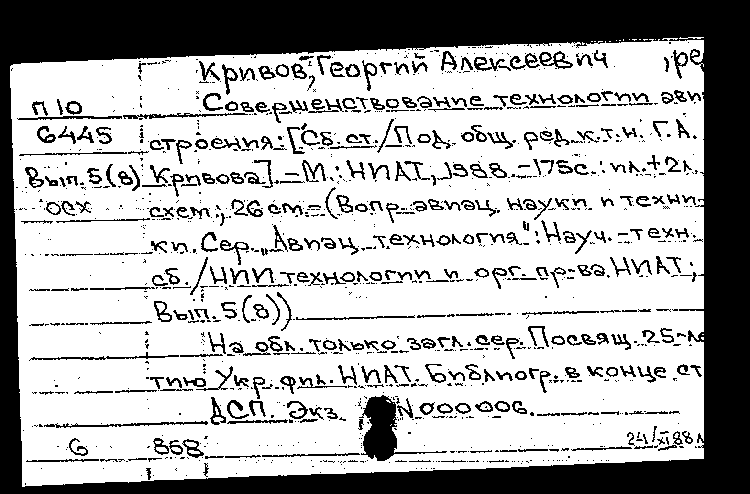 Кривов, Георгий Алексеевич , ре
П 10 Совершенствование технологии ави
6445 строения: [Сб. ст./Под. общ. ред. к.т.н. Г.А.
Вып. 5(8) Кривова]. – М.: НИАТ, 1988. – 175с.: ил. + 2л.
осх схем.; 26 cm. – (Вопр. авиац. науки и техни-
ки. Сер. „Авиац. технология": Науч. – техн.
сб. / НИИ технологии и орг. пр-ва. НИАТ;
Вып. 5(8))
На обл. только загл. сер. Посвящ. 25-ле
тию Укр. фил. НИАТ. Библиогр. в конце ст
ДСП. Экз. N 000006.
6 868 24/XI 88